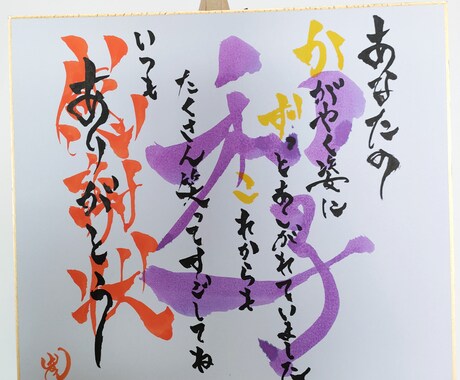 あなたの
かがやく姿に
ずっとあこがれていました
これからも
たくさん笑ってすごしてね
いつも
ありがとう
和子
感謝状